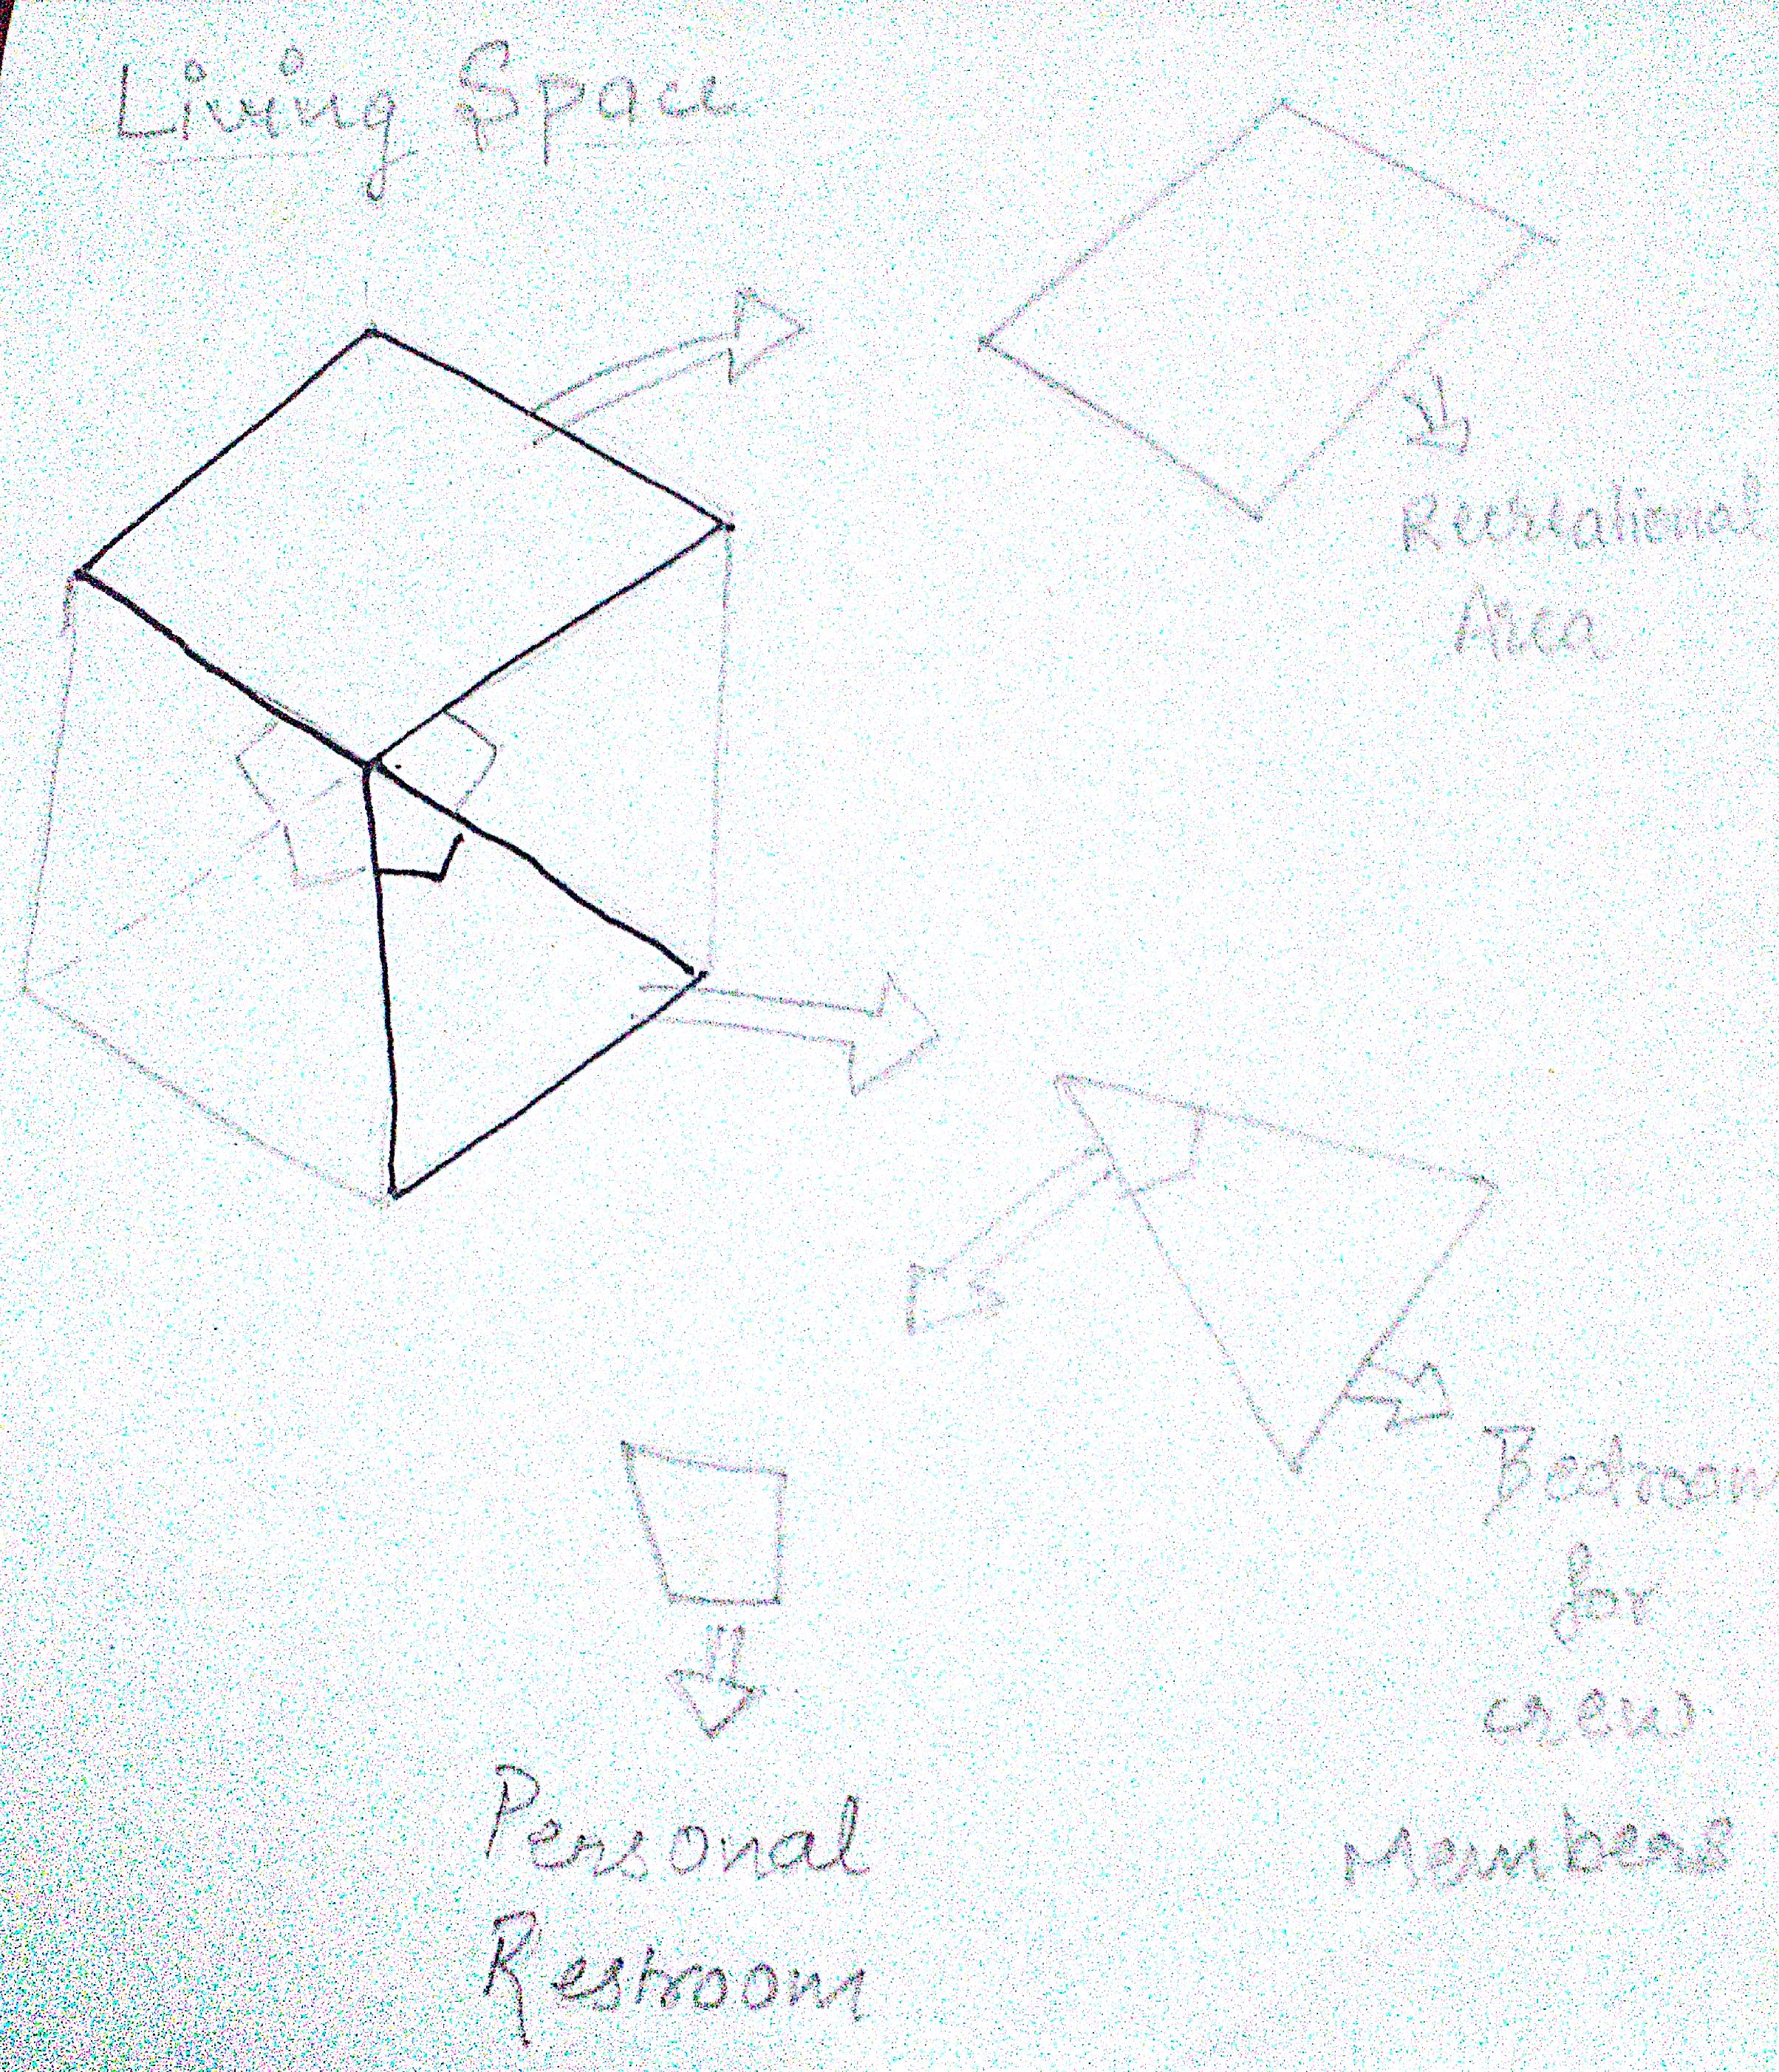 Living Space
Recreational
Area
Bedroom
for
crew
Members
Personal
Restroom